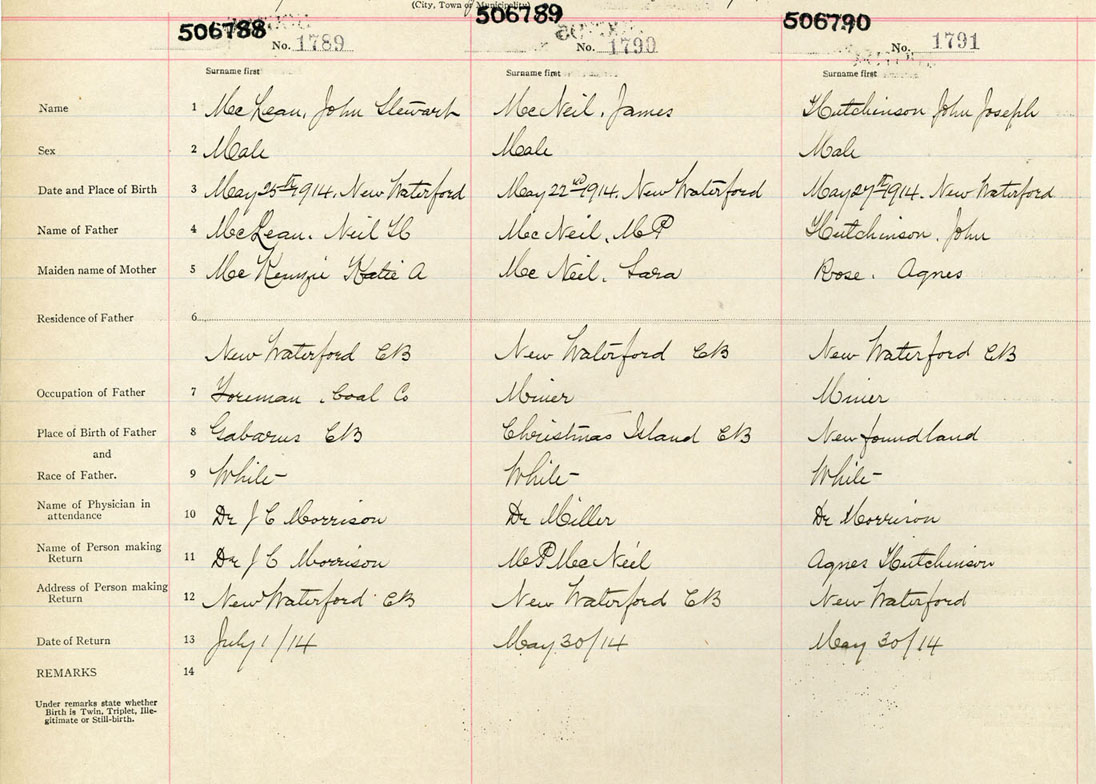 (City, Town or Municipality)
506788 506789 506790
No. 1789 No. 1790 No. 1791
Surname first Surname first Surname first
Name 1 McLean, John Stewart McNeil, James Hutchinson John Joseph
Sex 2 Male Male Male
Date and Place of Birth 3 May 25th 1914. New Waterford May 22nd 1914. New Waterford May 27th 1914. New Waterford
Name of Father 4 McLean. Neil H McNeil. M P Hutchinson. John
Maiden name of Mother 5 McKenzie Katie A McNeil. Sara Rose. Agnes
Residence of Father 6
New Waterford CB New Waterford CB New Waterford CB
Occupation of Father 7 Foreman. Coal Co Miner Miner
Place of Birth of Father 8 Gabarus CB Christmas Island CB Newfoundland
and
Race of Father. 9 White White White
Name of Physician in
attendance 10 Dr J C Morrison Dr Miller Dr Morrison
Name of Person making
Return 11 Dr J C Morrison M P McNeil Agnes Hutchinson
Address of Person making
Return 12 New Waterford CB New Waterford CB New Waterford
Date of Return 13 July 1/14 May 30/14 May 30/14
REMARKS 14
Under remarks state whether
Birth is Twin, Triplet, Ille-
gitimate or Still-birth.